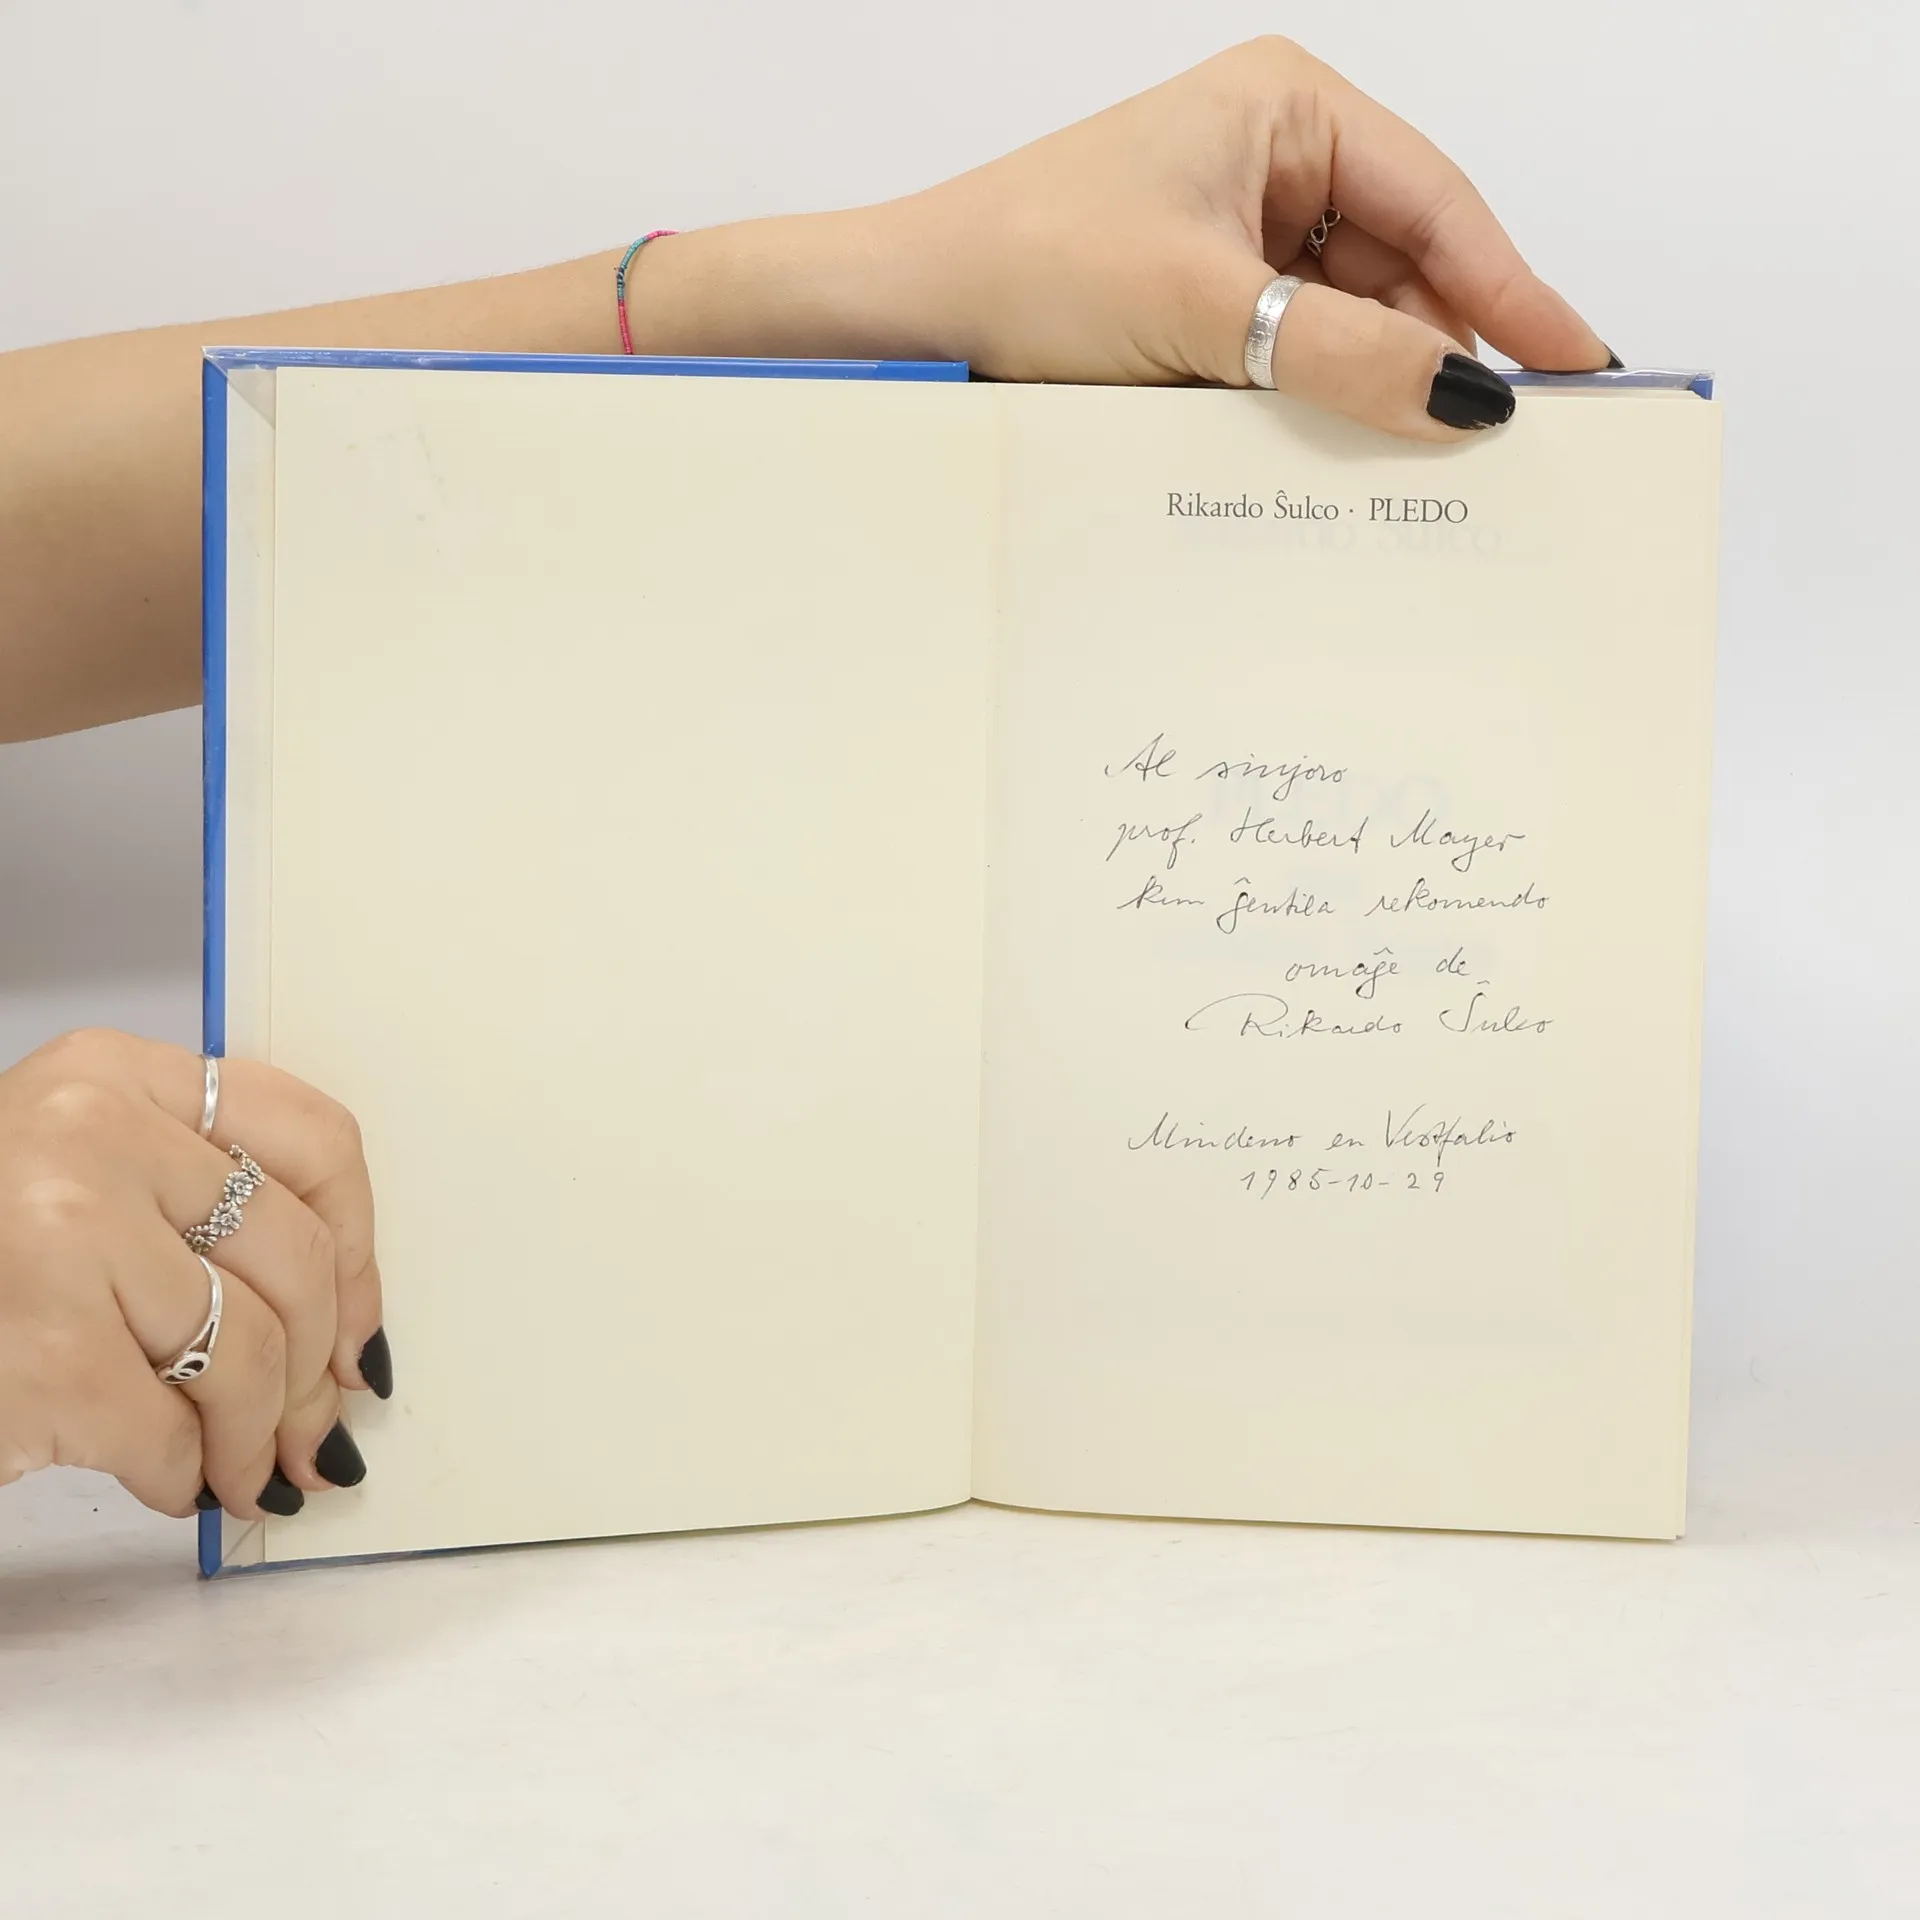 Rikardo Ŝulco · PLEDO
Al sinjoro
prof. Herbert Mayer
kun ĝentila rekomendo
omaĝe de
Rikardo Ŝulco
Mindeno en Vestfalio
1985-10-29